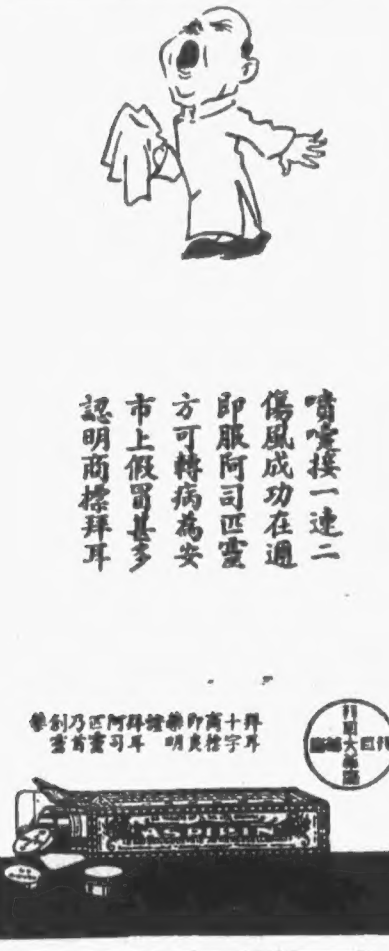 噴嚏接一連二
傷風成功在邇
即服阿司匹靈
方可轉病為安
市上假冒甚多
認明商標拜耳
拜耳十字商標即良藥明證
拜耳阿司匹靈乃首創靈藥
ASPIRIN